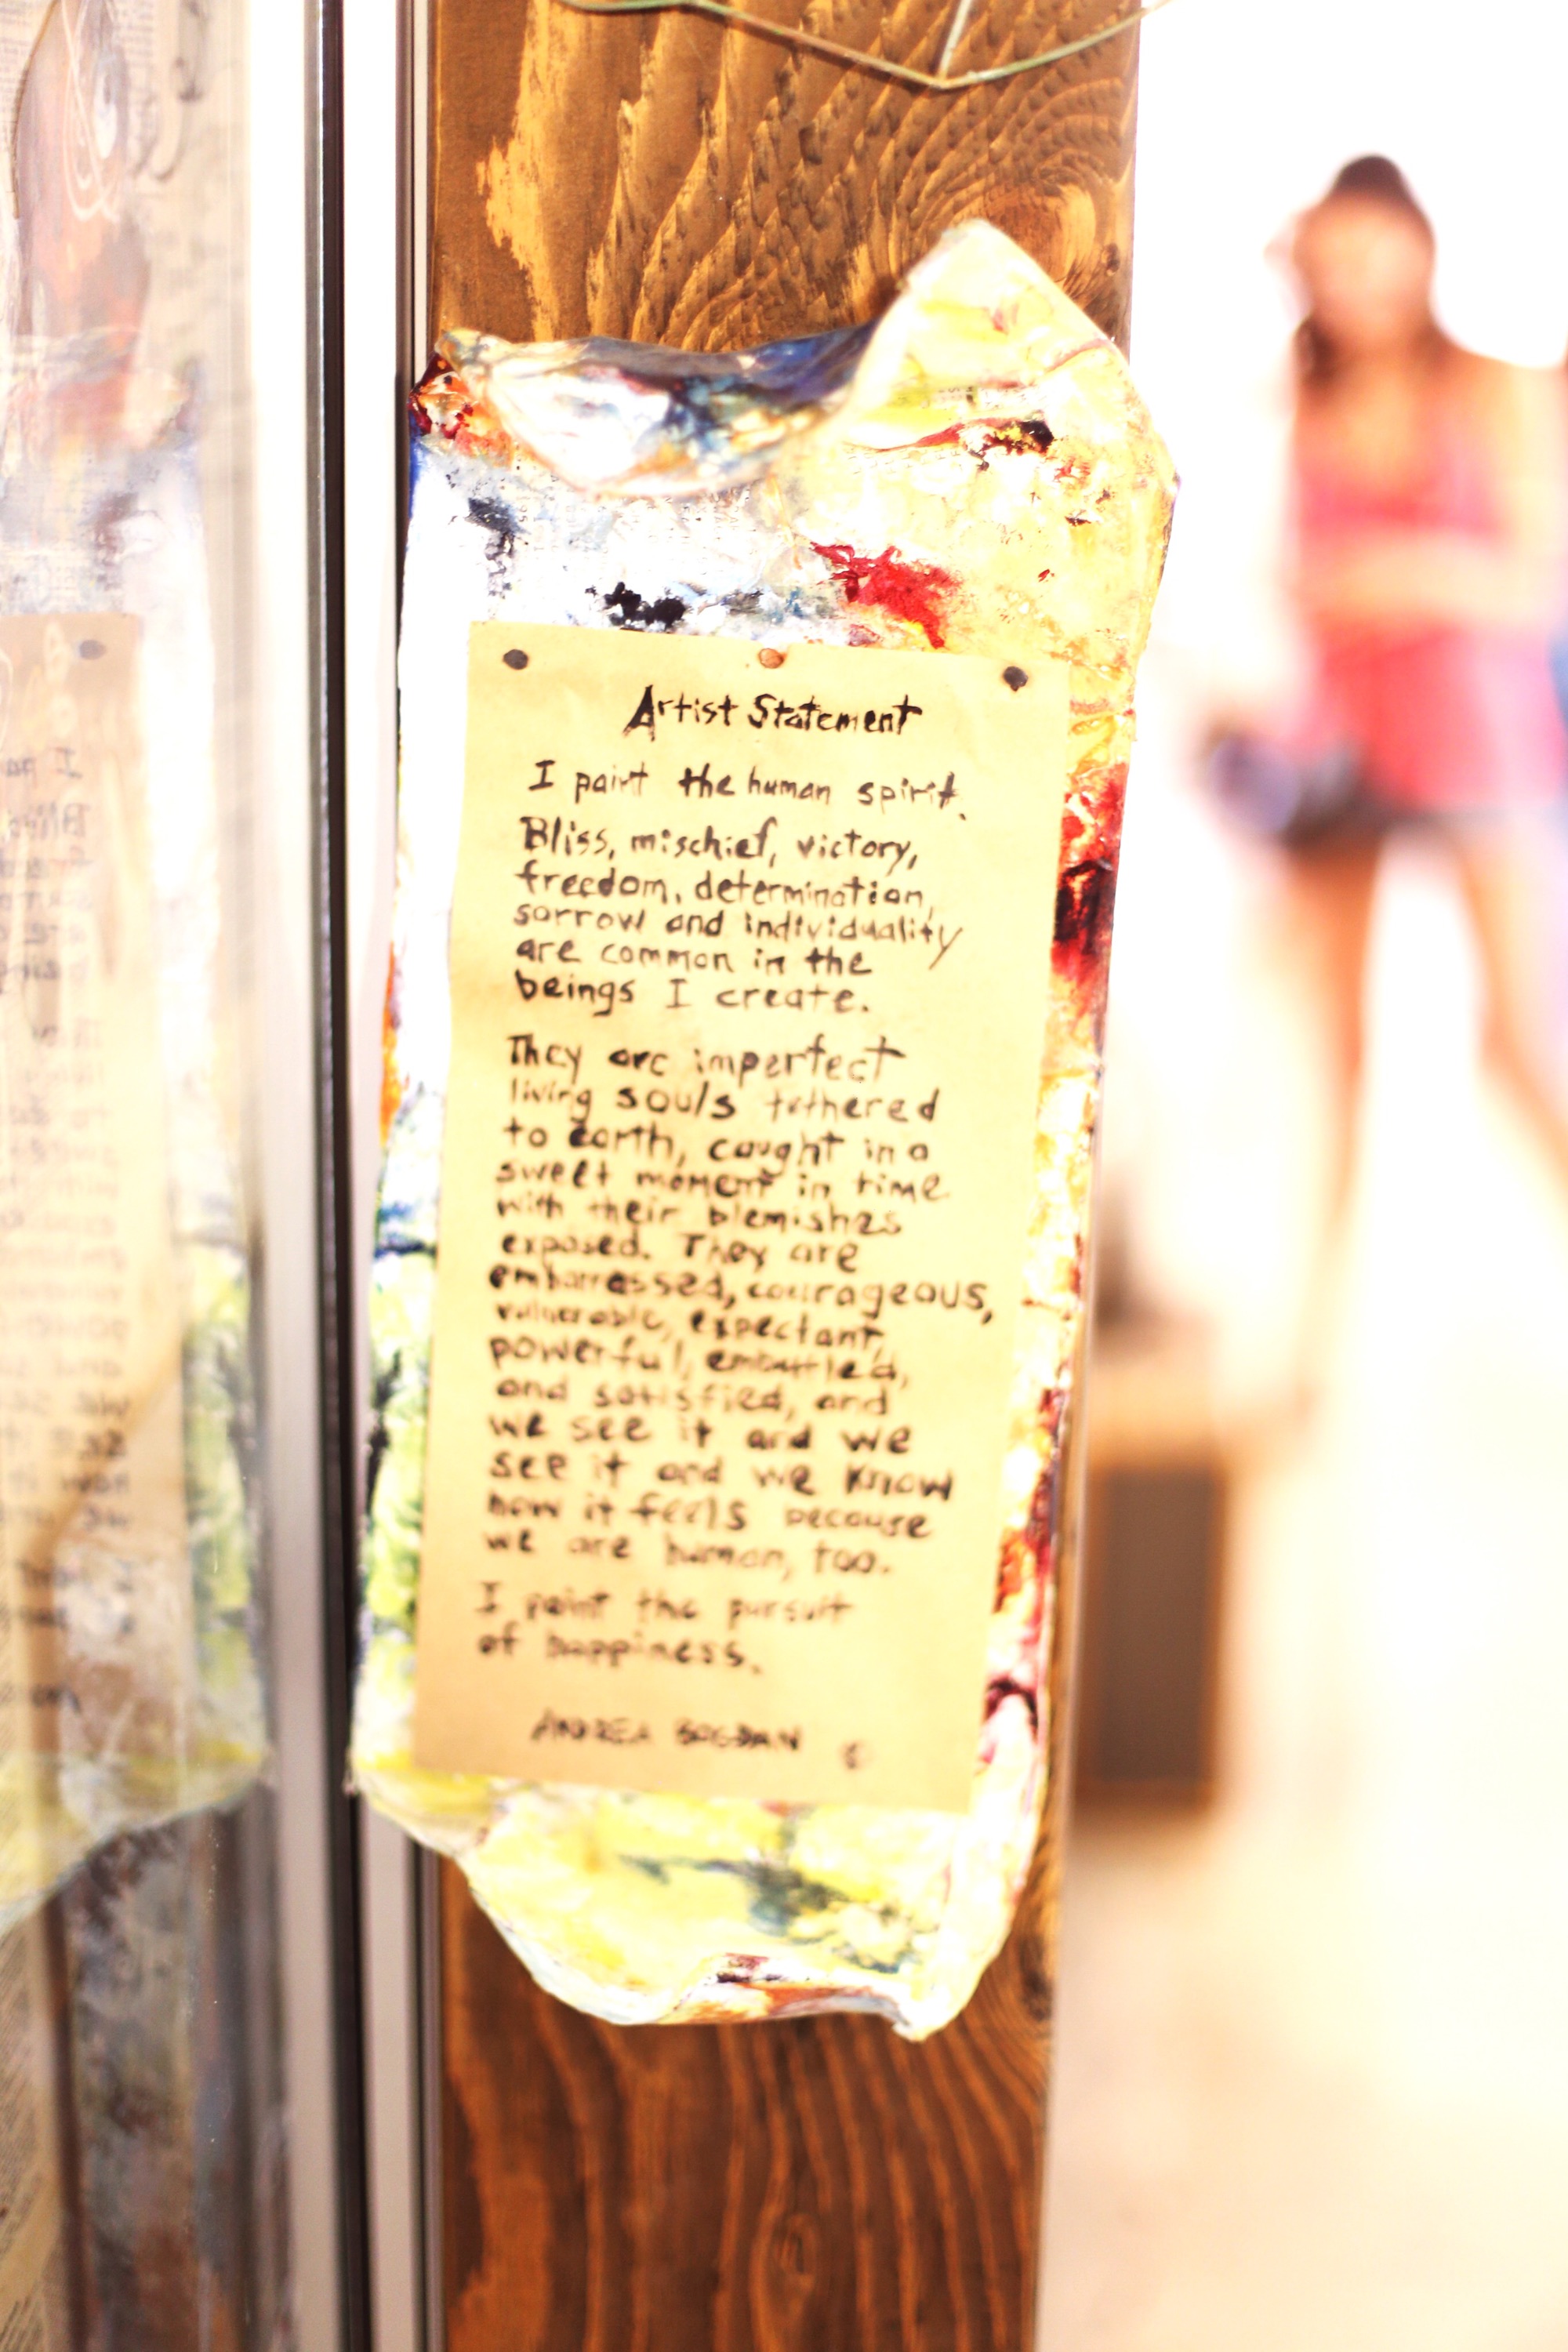 Artist Statement
I paint the human spirit.
Bliss, mischief, victory,
freedom, determination,
sorrow and individuality
are common in the
beings I create.
They are imperfect
living souls tethered
to earth, caught in a
sweet moment in time
with their blemishes
exposed. They are
embarressed, courageous,
vulnerable, expectant,
powerful, embattled,
and satisfied, and
we see it and we
see it and we know
how it feels because
we are human, too.
I paint the pursuit
of happiness.
ANDREA BOGDAN